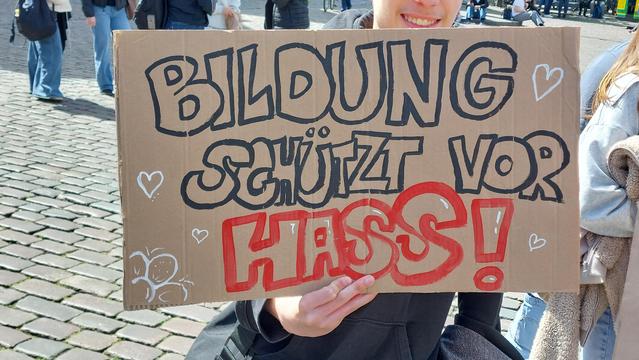 BILDUNG
SCHÜTZT VOR
HASS!